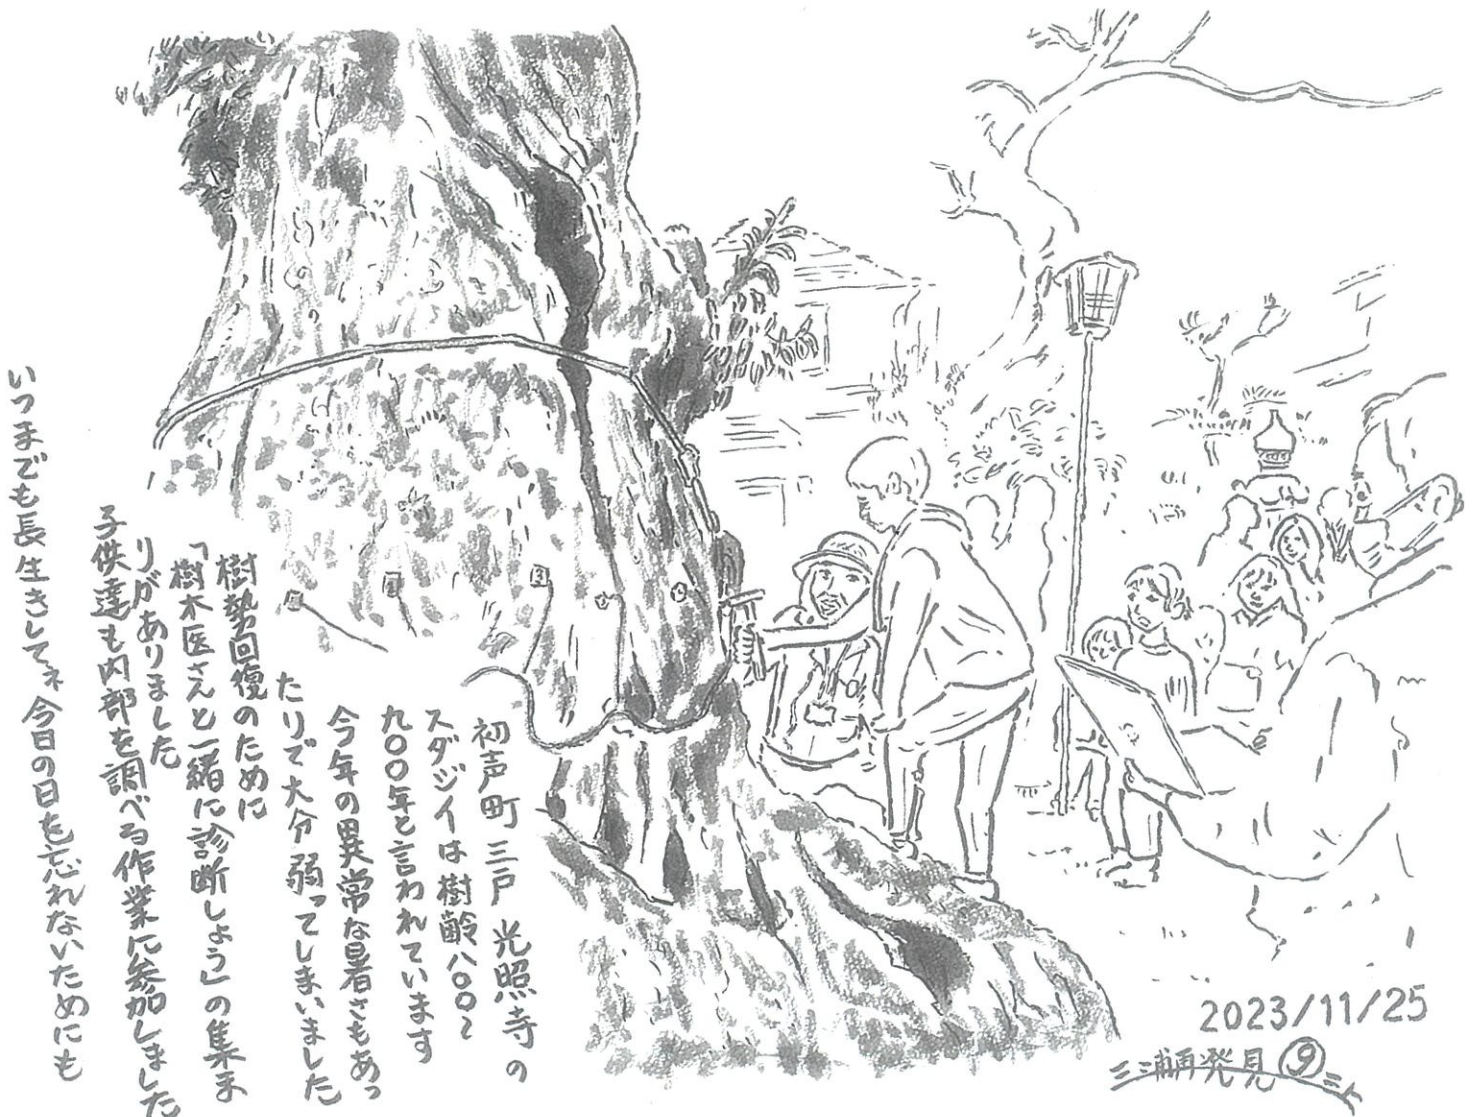 初声町三戸光照寺の
スダジイは樹齢八〇〇〜
九〇〇年と言われています
今年の異常な暑さもあっ
たりで大分弱ってしまいました
樹勢回復のために
「樹木医さんと一緒に診断しよう」の集ま
りがありました
子供達も内部を調べる作業に参加しました
いつまでも長生きしてネ今日の日を忘れないためにも
2023/11/25
三浦再発見⑨